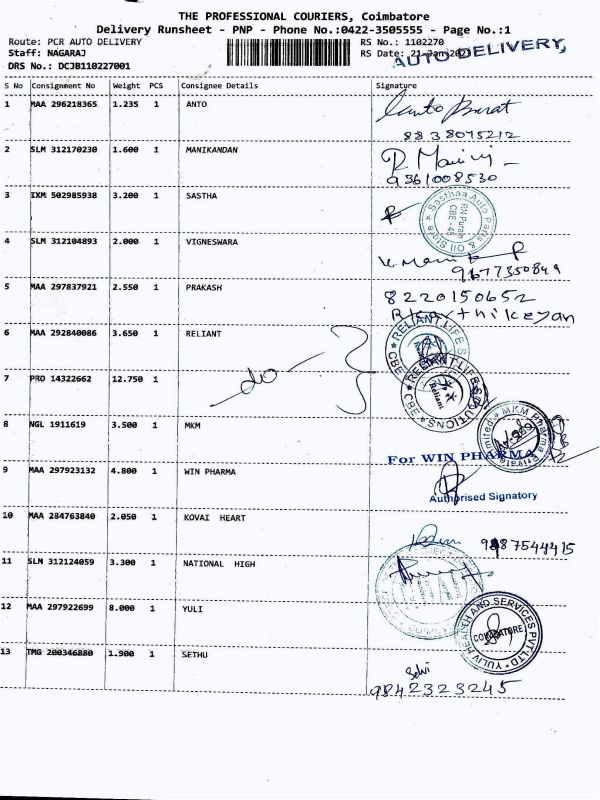 THE PROFESSIONAL COURIERS, Coimbatore
Delivery Runsheet - PNP - Phone No.:0422-3505555 - Page No.:1
Route: PCR AUTO DELIVERY RS No.: 1102270
Staff: NAGARAJ RS Date: 21-Jan-2021 AUTO DELIVERY,
DRS No.: DCJB110227001
S No Consignment No Weight PCS Consignee Details Signature
1 MAA 296218365 1.235 1 ANTO
8838075212
2 SLM 312170230 1.600 1 MANIKANDAN R Mani
9361008530
3 IXM 502985938 3.200 1 SASTHA Sasthaa Auto Parts & Oil Store
CBE - 45
4 SLM 312104893 2.000 1 VIGNESWARA
9677350849
5 MAA 297837921 2.550 1 PRAKASH 8220150652
Karthikeyan
6 MAA 292840086 3.650 1 RELIANT RELIANT LIFE CBE
7 PRO 14322662 12.750 1 -do- RELIANT LIFE SOLUTIONS CBE Reliant
8 NGL 1911619 3.500 1 MKM MKM Pharma Private Limited
For WIN PHARMA
9 MAA 297923132 4.800 1 WIN PHARMA
Authorised Signatory
10 MAA 284763840 2.050 1 KOVAI HEART
9487544415
11 SLM 312124059 3.300 1 NATIONAL HIGH NHAI
12 MAA 297922699 8.000 1 YULI YULIV HEALTH AND SERVICES PVT LTD COIMBATORE
13 TMG 200346880 1.900 1 SETHU Selvi
9842323245